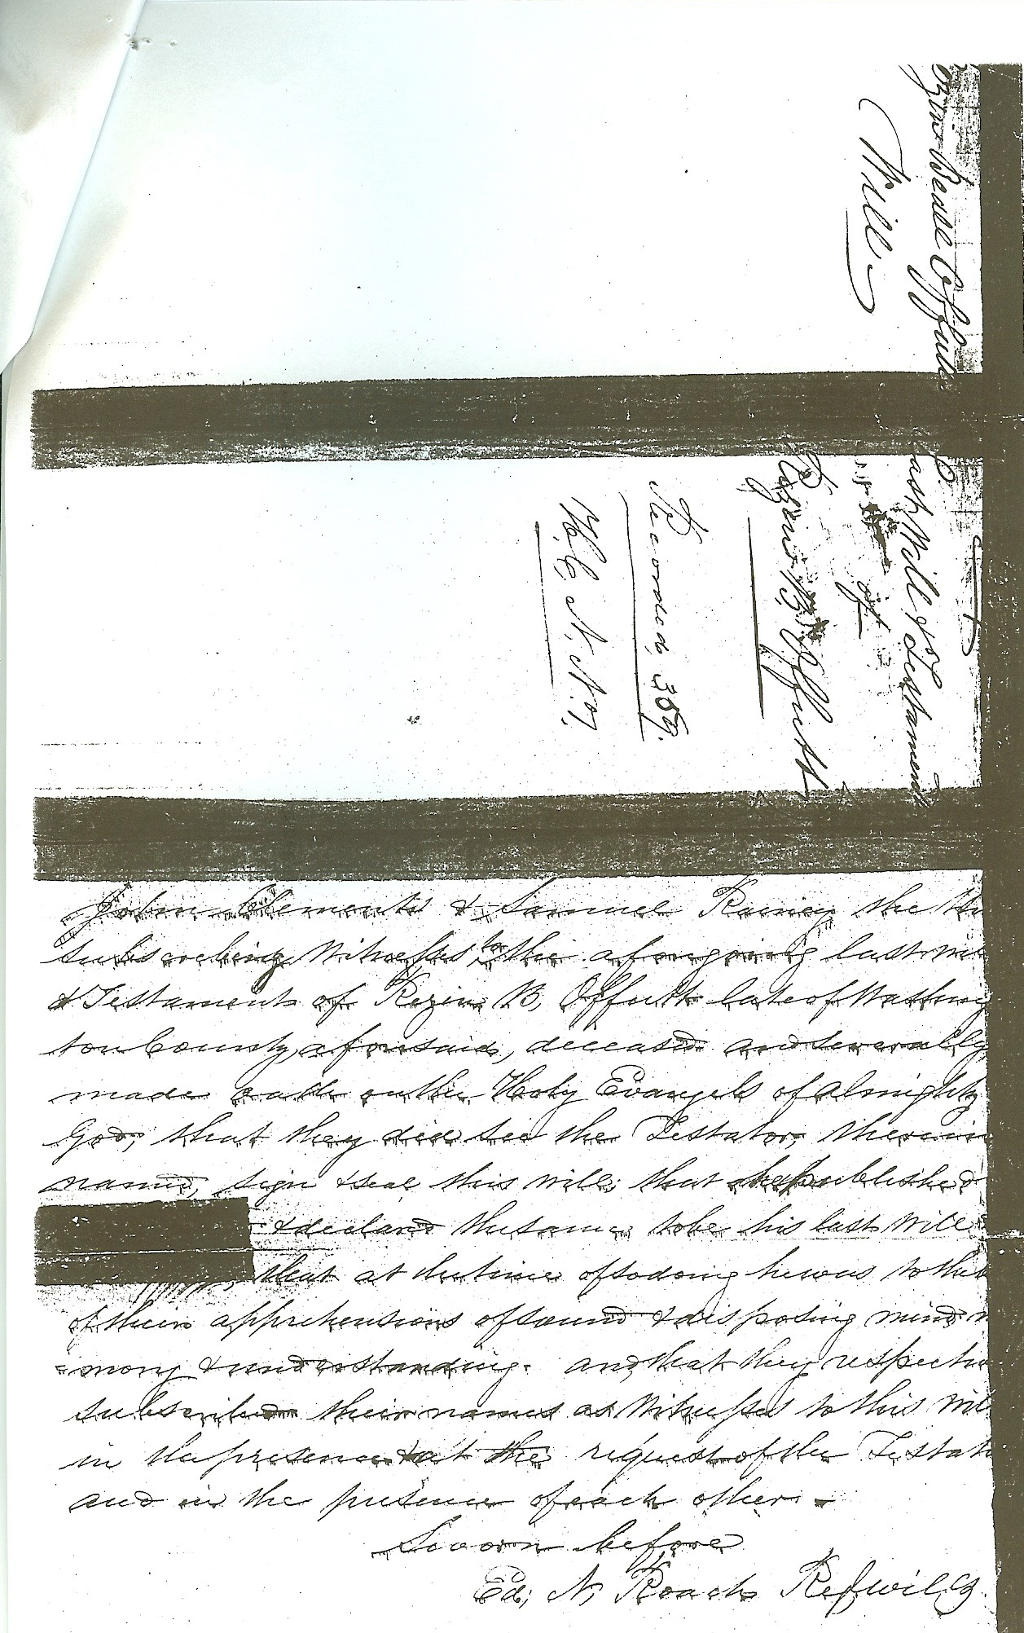 Rezin Beall Offutt
Will
Last Will & Testament
of
Rezin B. Offutt
Recorded, 359.
H. C. N. No 7,
John Clements & Samuel Rainey the
subscribing Witnesses to the aforegoing last
& Testament of Rezin B, Offutt late of Washing
ton County, aforesaid, deceased and severally
made oath on the Holy Evangels of Almighty
God, that they did see the Testator, therein
named, sign & seal this will; that he published
& declared the same, to be his last Will
that at the time of so doing he was to the
of their apprehensions of sound & disposing mind
mory & understanding. and that they
subscribed their names as Witnesses to this
in the presence & at the request of the
and in the presence of each other.
Sworn before
Ed; N, Roach Regwills